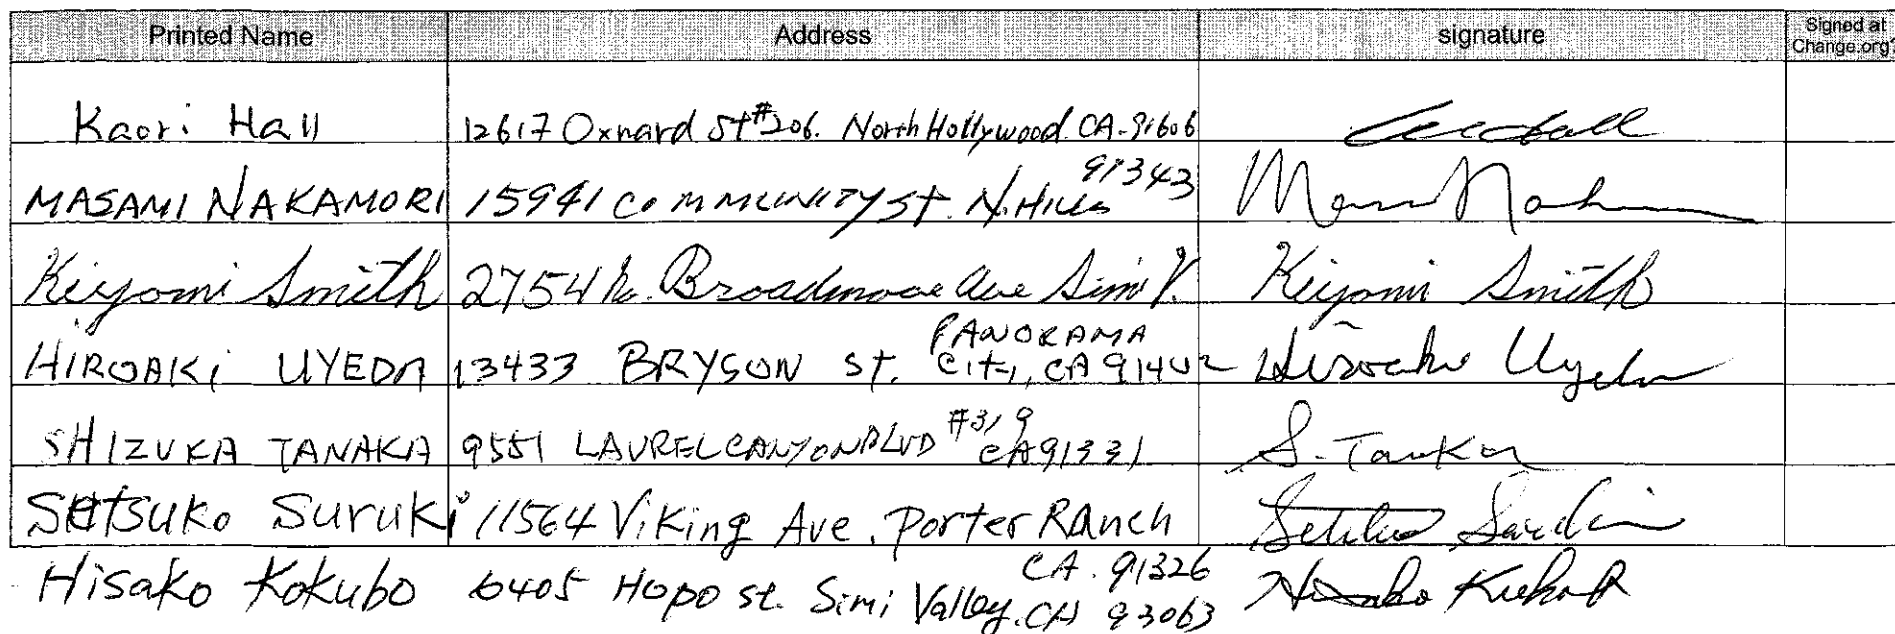 Printed Name Address signature Signed at Change.org?
Kaori Hall 12617 Oxnard St #206. North Hollywood. CA-91606
MASAMI NAKAMORI 15941 COMMUNITY St. N. Hills 91343
Kiyomi Smith 2754 N. Broadmoor Ave Simi V. Kiyomi Smith
HIROAKI UYEDA 13433 BRYSON St. PANORAMA City, CA 91402 Hiroaki Uyeda
SHIZUKA TANAKA 9551 LAUREL CANYON BLVD #319 CA91331 S. Tanaka
Setsuko Suruki 11564 Viking Ave. Porter Ranch CA. 91326
Hisako Kokubo 6405 Hopo st. Simi Valley. CA 93063